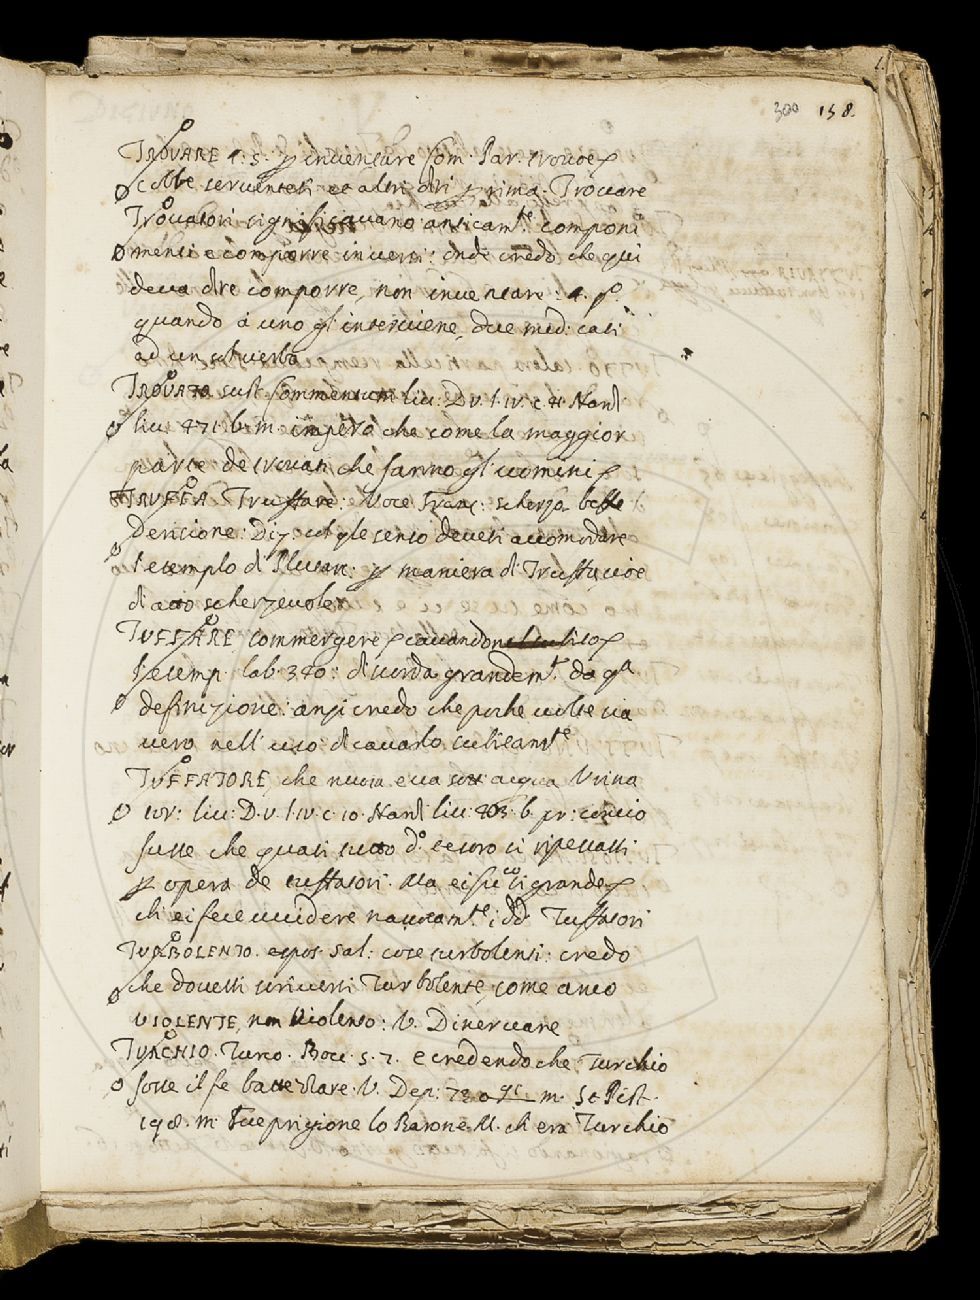 300 158.
TROVARE 4: 5. p inventare Com. Par. trovò e
cobbe serventesi et altri dri p rima. Trovare
Trovatori significavano anticam.te componi
menti e comporre in versi: onde credo che qui
deva dire comporre, non inventare: 4. p.o
quando à uno gl' interviene due med: casi
ad un sol verbo
TROVATO sust. Commentum liv: D. v. l. iv. c. 41 Nard
liv. 471. b. m. imperò che come la maggior
parte de trovati che fanno gl' uomini
TRUFFA Truffare: Voce Franz: scherza beffe
Derisione: Diz. col q.le senso devesi accomodare
l'esemplo di Plutarc. p maniera di Truffa, cioe
di atto scherzevole
TUFFARE, commergere cavandone subito
l'esemp. lab. 320: discorda grandem.te da q.a
definizione: anzi credo che poche volte sia
vero nell' uso di cavarlo subitam.te
TUFFATORE, che nuota e va sott' acqua Urina
tor: liv: D. v. l. iv. c. 10. Nard liv: 803. b. pr: concio
fusse che quasi tutto d.o tesoro si ripescassi
p opera de tuffatori. Ma ei fu così grande
ch' ei fece uccidere nascosam.te i dd. Tuffatori
TURBOLENTO. espos. Sal: cose turbolensi: credo
che dovessi scriversi Turbolente, come anco
VIOLENTE, non Violento: V. Dinervare
TURCHIO. Turco. Bocc. 5. 7. e credendo che Turchio
fosse il fe battezzare. V. Dep: 73. m. St. Pist.
198. m. Fue prigione lo Barone M. ch' era Turchio